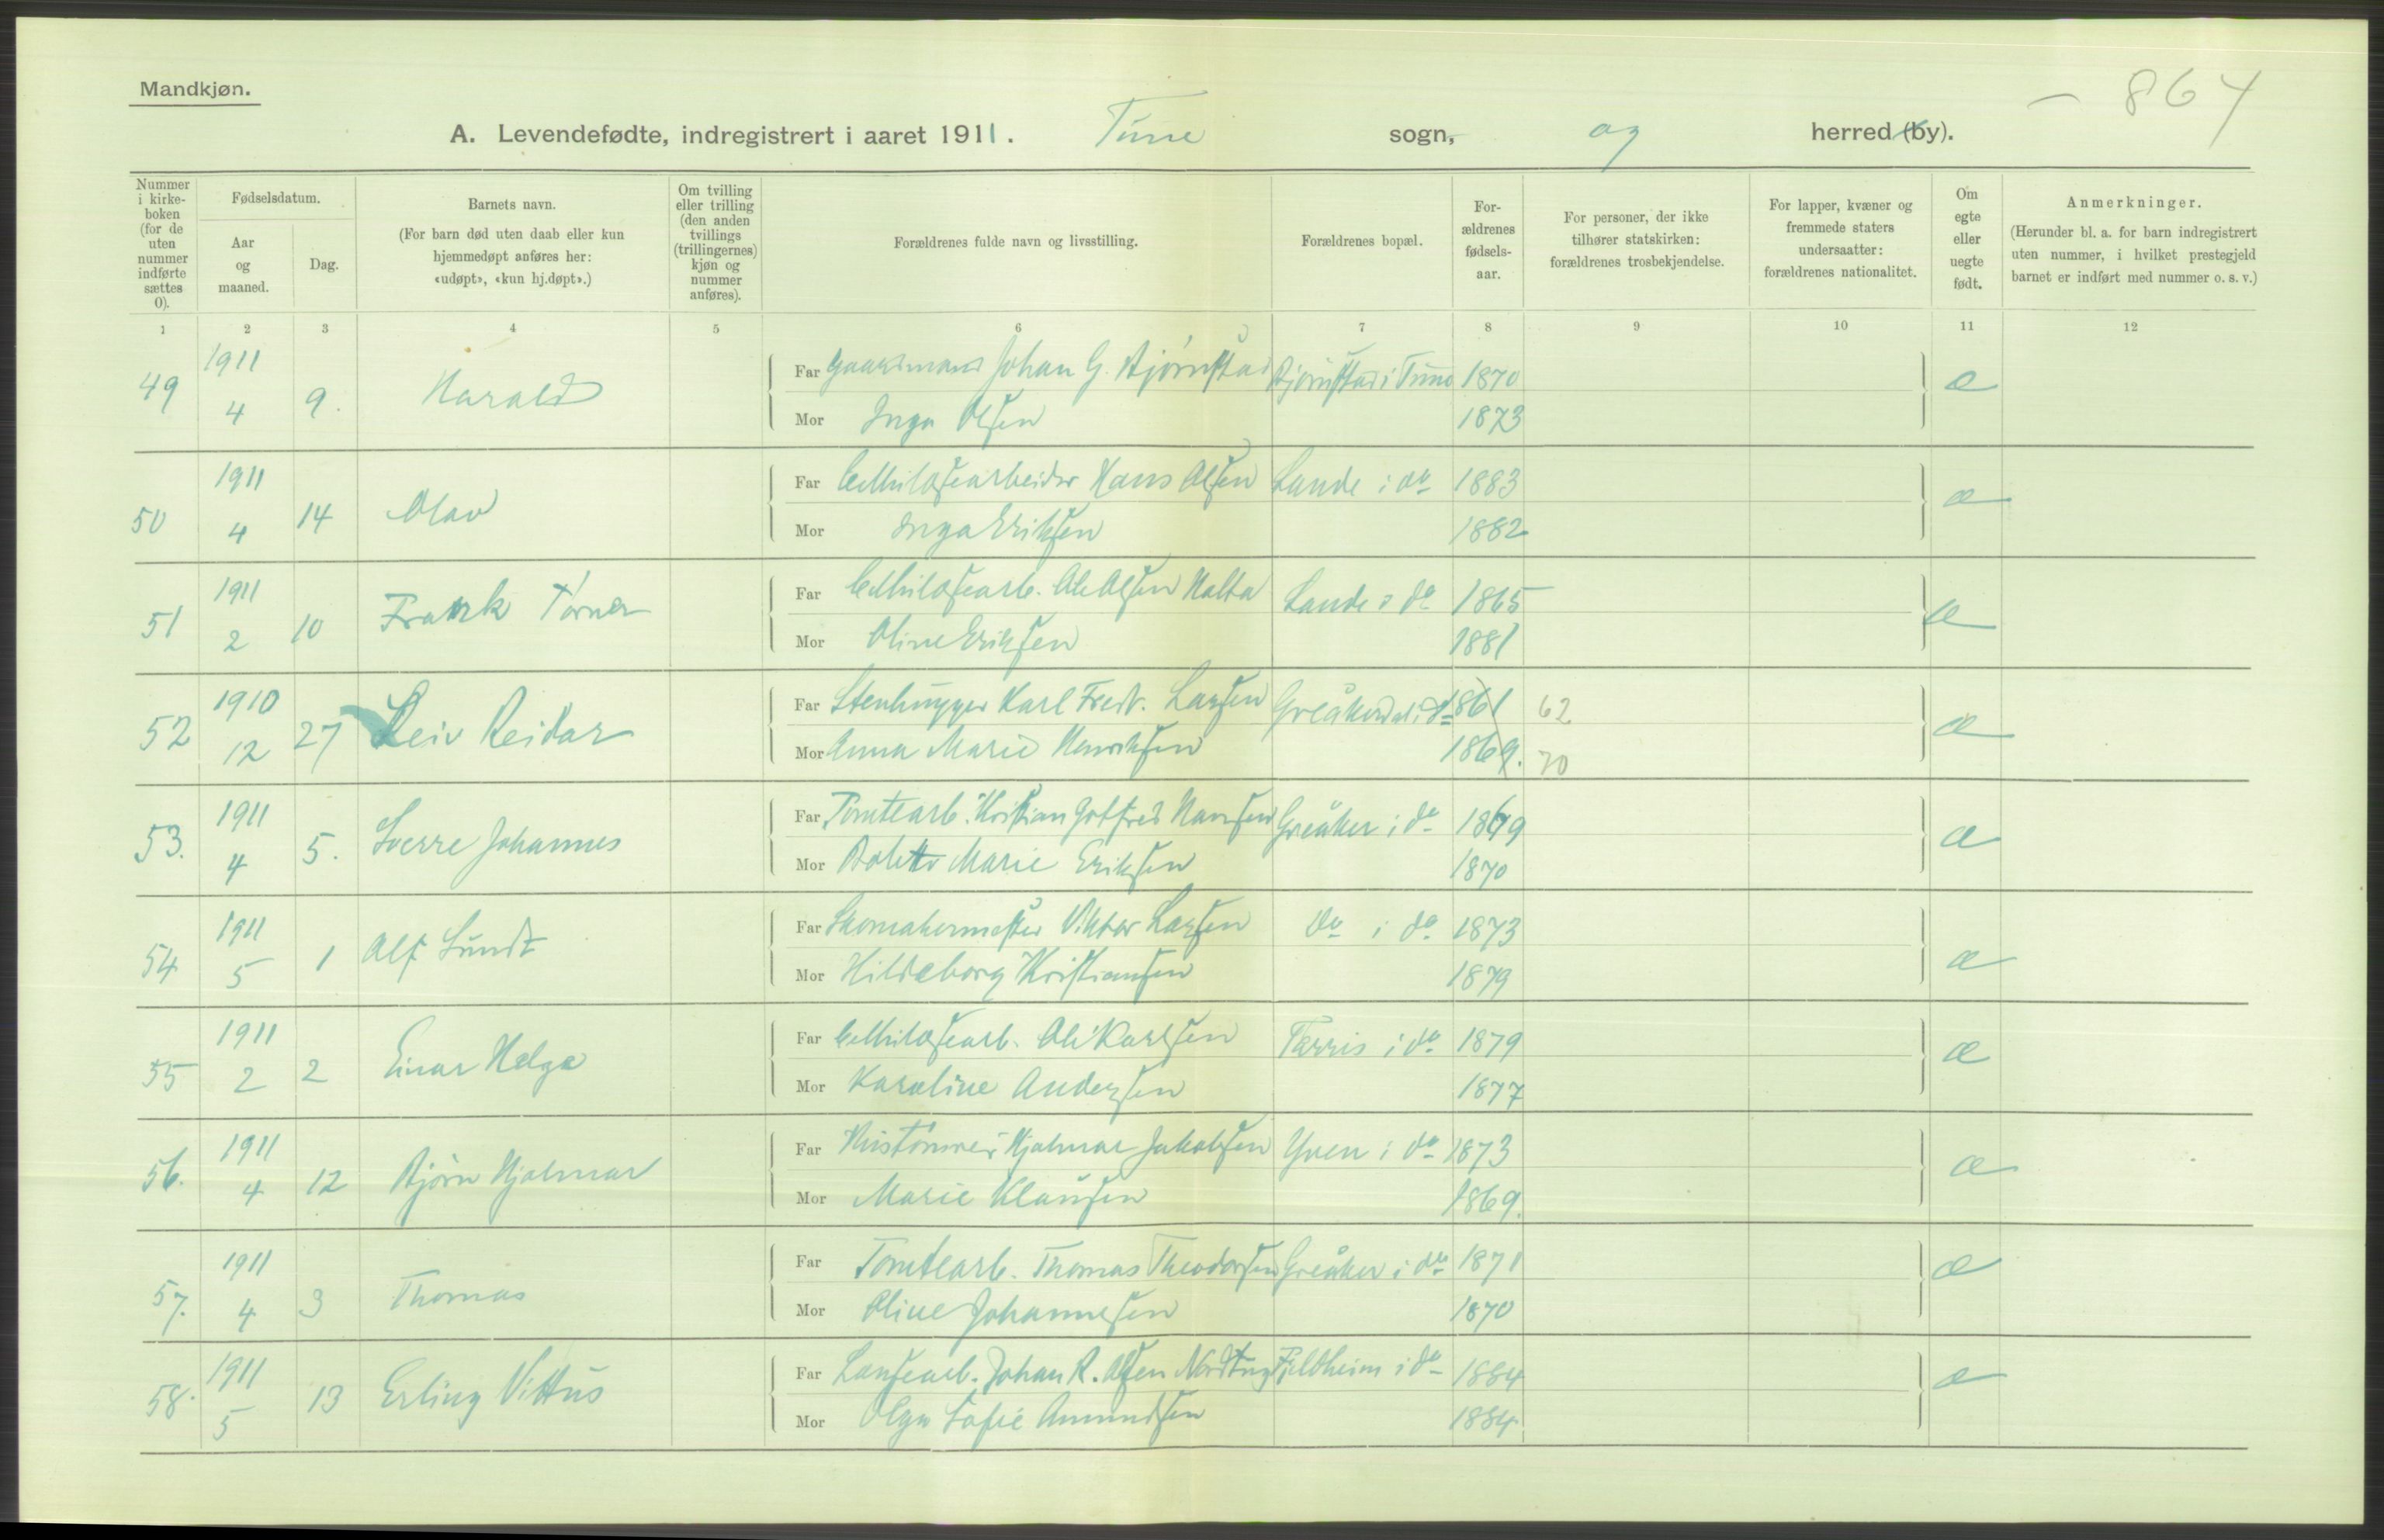 Mandkjøn.
– 864
A. Levendefødte, indregistrert i aaret 1911. Tune sogn, og herred (by).
Nummer i kirke-boken (for de uten nummer indførte sættes 0).
Fødselsdatum.
Aar og maaned.
Dag.
Barnets navn.
(For barn død uten daab eller kun hjemmedøpt anføres her: «udøpt», «kun hj.døpt».)
Om tvilling eller trilling (den anden tvillings (trillingernes) kjøn og nummer anføres).
Forældrenes fulde navn og livsstilling.
Forældrenes bopæl.
For-ældrenes fødsels-aar.
For personer, der ikke tilhører statskirken: forældrenes trosbekjendelse.
For lapper, kvæner og fremmede staters undersaatter: forældrenes nationalitet.
Om egte eller uegte født.
Anmerkninger.
(Herunder bl. a. for barn indregistrert uten nummer, i hvilket prestegjeld barnet er indført med nummer o. s. v.)
1 2 3 4 5 6 7 8 9 10 11 12
49 1911 4 9. Harald
Far Gaardmand Johan G. Bjørnstad Bjørnstad i Tune 1870 e
Mor Inga Olsen 1873
50 1911 4 14 Olav
Far Cellulosearbeider Hans Olsen Lande i do 1883 e
Mor Inga Eriksen 1882
51 1911 2 10 Frank Torner
Far Cellulosearb. Ole Olsen Lande i do 1865 e
Mor Oline Eriksen 1881
52 1910 12 27 Leiv Reidar
Far Stenhugger Karl Fredr. Larsen Greåkerdal i do 1861 62 e
Mor Anna Marie Henriksen 1869. 70
53. 1911 4 5. Sverre Johannes
Far Tomtearb. Kristian Gotfred Hansen Greåker i do 1869 e
Mor Bolette Marie Eriksen 1870
54 1911 5 1 Alf Lundt
Far Skomakermester Viktor Larsen do i do 1873 e
Mor Hildeborg Kristiansen 1879
55 1911 2 2 Einar Helge
Far Cellulosearb. Ole Karlsen Tærris i do 1879 e
Mor Karoline Andersen 1877
56. 1911 4 12 Bjørn Hjalmar
Far Hustømrer Hjalmar Jakobsen Yven i do 1873 e
Mor Marie Klausen 1869.
57. 1911 4 3 Thomas
Far Tomtearb. Thomas Theodorsen Greåker i do 1871 e
Mor Oline Johannesen 1870
58. 1911 5 13 Erling Vittus
Far Lansearb. Johan R. Olsen Fjeldheim i do 1884 e
Mor Olga Sofie Amundsen 1884